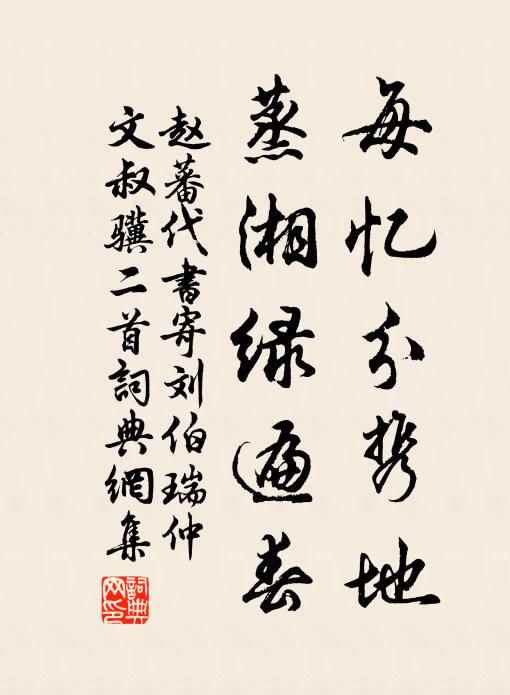 每忆分携地
蒸湘绿遍春
赵蕃代書寄刘伯瑞仲
文叔骥二首詞典網集
詞典网印